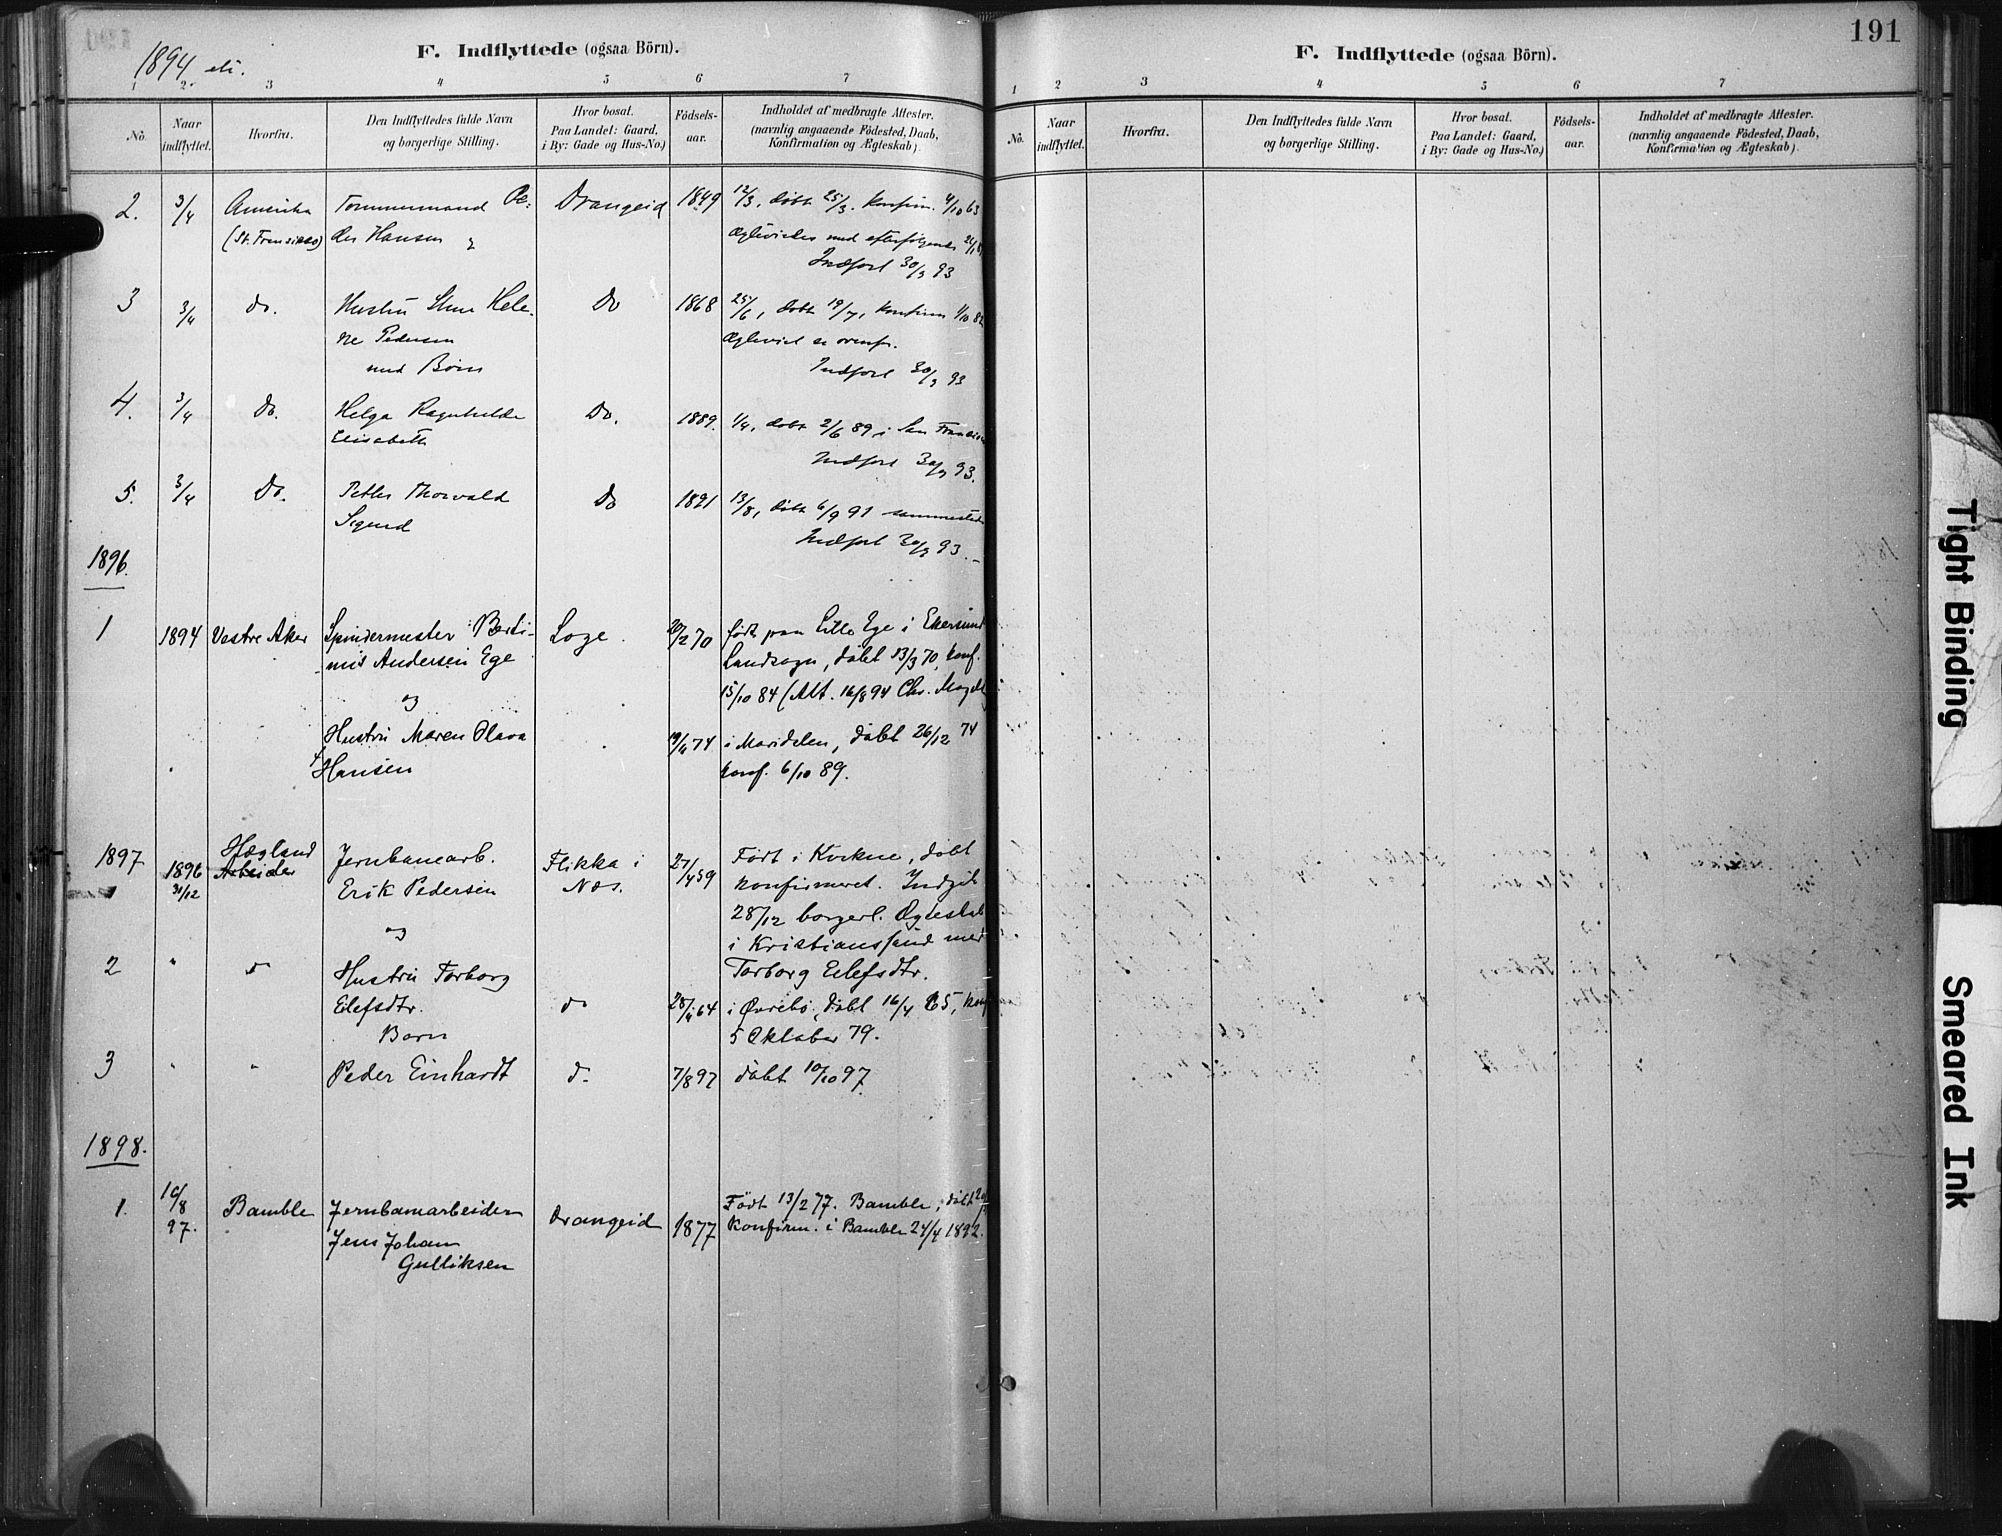 1894
F. Indflyttede (ogsaa Börn).
1 2. 3 4 5 6 7
No.
Naar
indflyttet.
Hvorfra.
Den Indflyttedes fulde Navn
og borgerlige Stilling.
Hvor bosat.
Paa Landet: Gaard,
i By: Gade og Hus-No.)
Födsels-
aar.
Indholdet af medbragte Attester.
(navnlig angaaende Födested, Daab,
Konfirmation og Ægteskab).
2. 3/4 Amerika Tømmermand Pe: Drangeid 1849 12/3, døbt 25/3. konfirm. 4/10 63
(St. Fransisco) der Hansen
Ægteviet med efterfølgende
Indført 30/3 93
3 3/4 do. Hustru Hele- Do 1868 25/6, døbt 19/7, konfirm 1/10 82
ne Pedersen
Ægteviet se ovenfr.
med Børn
Indført 30/3 93
4. 3/4 do. Helga Ragnhilde Do. 1889. 1/4, døbt 2/6 89 i San
Elisabeth
Indført 30/3 93.
5. 3/4 Do. Petter Thorvald Do 1891 13/8, døbt 6/9 91 sammesteds
Sigurd
Indført 30/3 93.
1896.
1 1894 Vestre Aker Spindermester Berti- Loge. 20/2 70 født paa Lille Ege i Ekersund
nius Andersen Ege
Landsogn, døbt 13/3 70, konf.
og
15/10 84 (Att. 16/8 94 Chr.
Hustru Maren Olava 19/4 74 i Maridalen, døbt 26/12 74
Hansen
konf. 6/10 89.
1897 1896 Hægland Jernbanearb. Flikka i 27/4 59 Født i Kvikne, døbt
1 31/12 Arbeider Erik Pedersen Næs. konfirmeret. Indgik
og
28/12 borgerl. Ægteskab
i Kristianssand med
2 " do Hustru Torborg Torborg Eilefsdtr.
Eilefsdtr. do 28/4 64 i Øvrebø, døbt 16/4 65, konf
Barn
5 Oktober 79.
3 " " Peder Einhardt d. 7/8 97 døbt 10/10 97
1898.
1. 10/8 97. Bamble Jernbanearbeider Drangeid 1877 Født 13/2 77. Bamble, døbt
Jens Johan
Konfirm. i Bamble 24/4 1892.
Gulliksen
191
F. Indflyttede (ogsaa Börn).
1 2 3 4 5 6 7
No.
Naar
indflyttet.
Hvorfra.
Den Indflyttedes fulde Navn
og borgerlige Stilling.
Hvor bosat.
Paa Landet: Gaard,
i By: Gade og Hus-No.)
Födsels-
aar.
Indholdet af medbragte Attester.
(navnlig angaaende Födested, Daab,
Konfirmation og Ægteskab).
Tight Binding
Smeared Ink